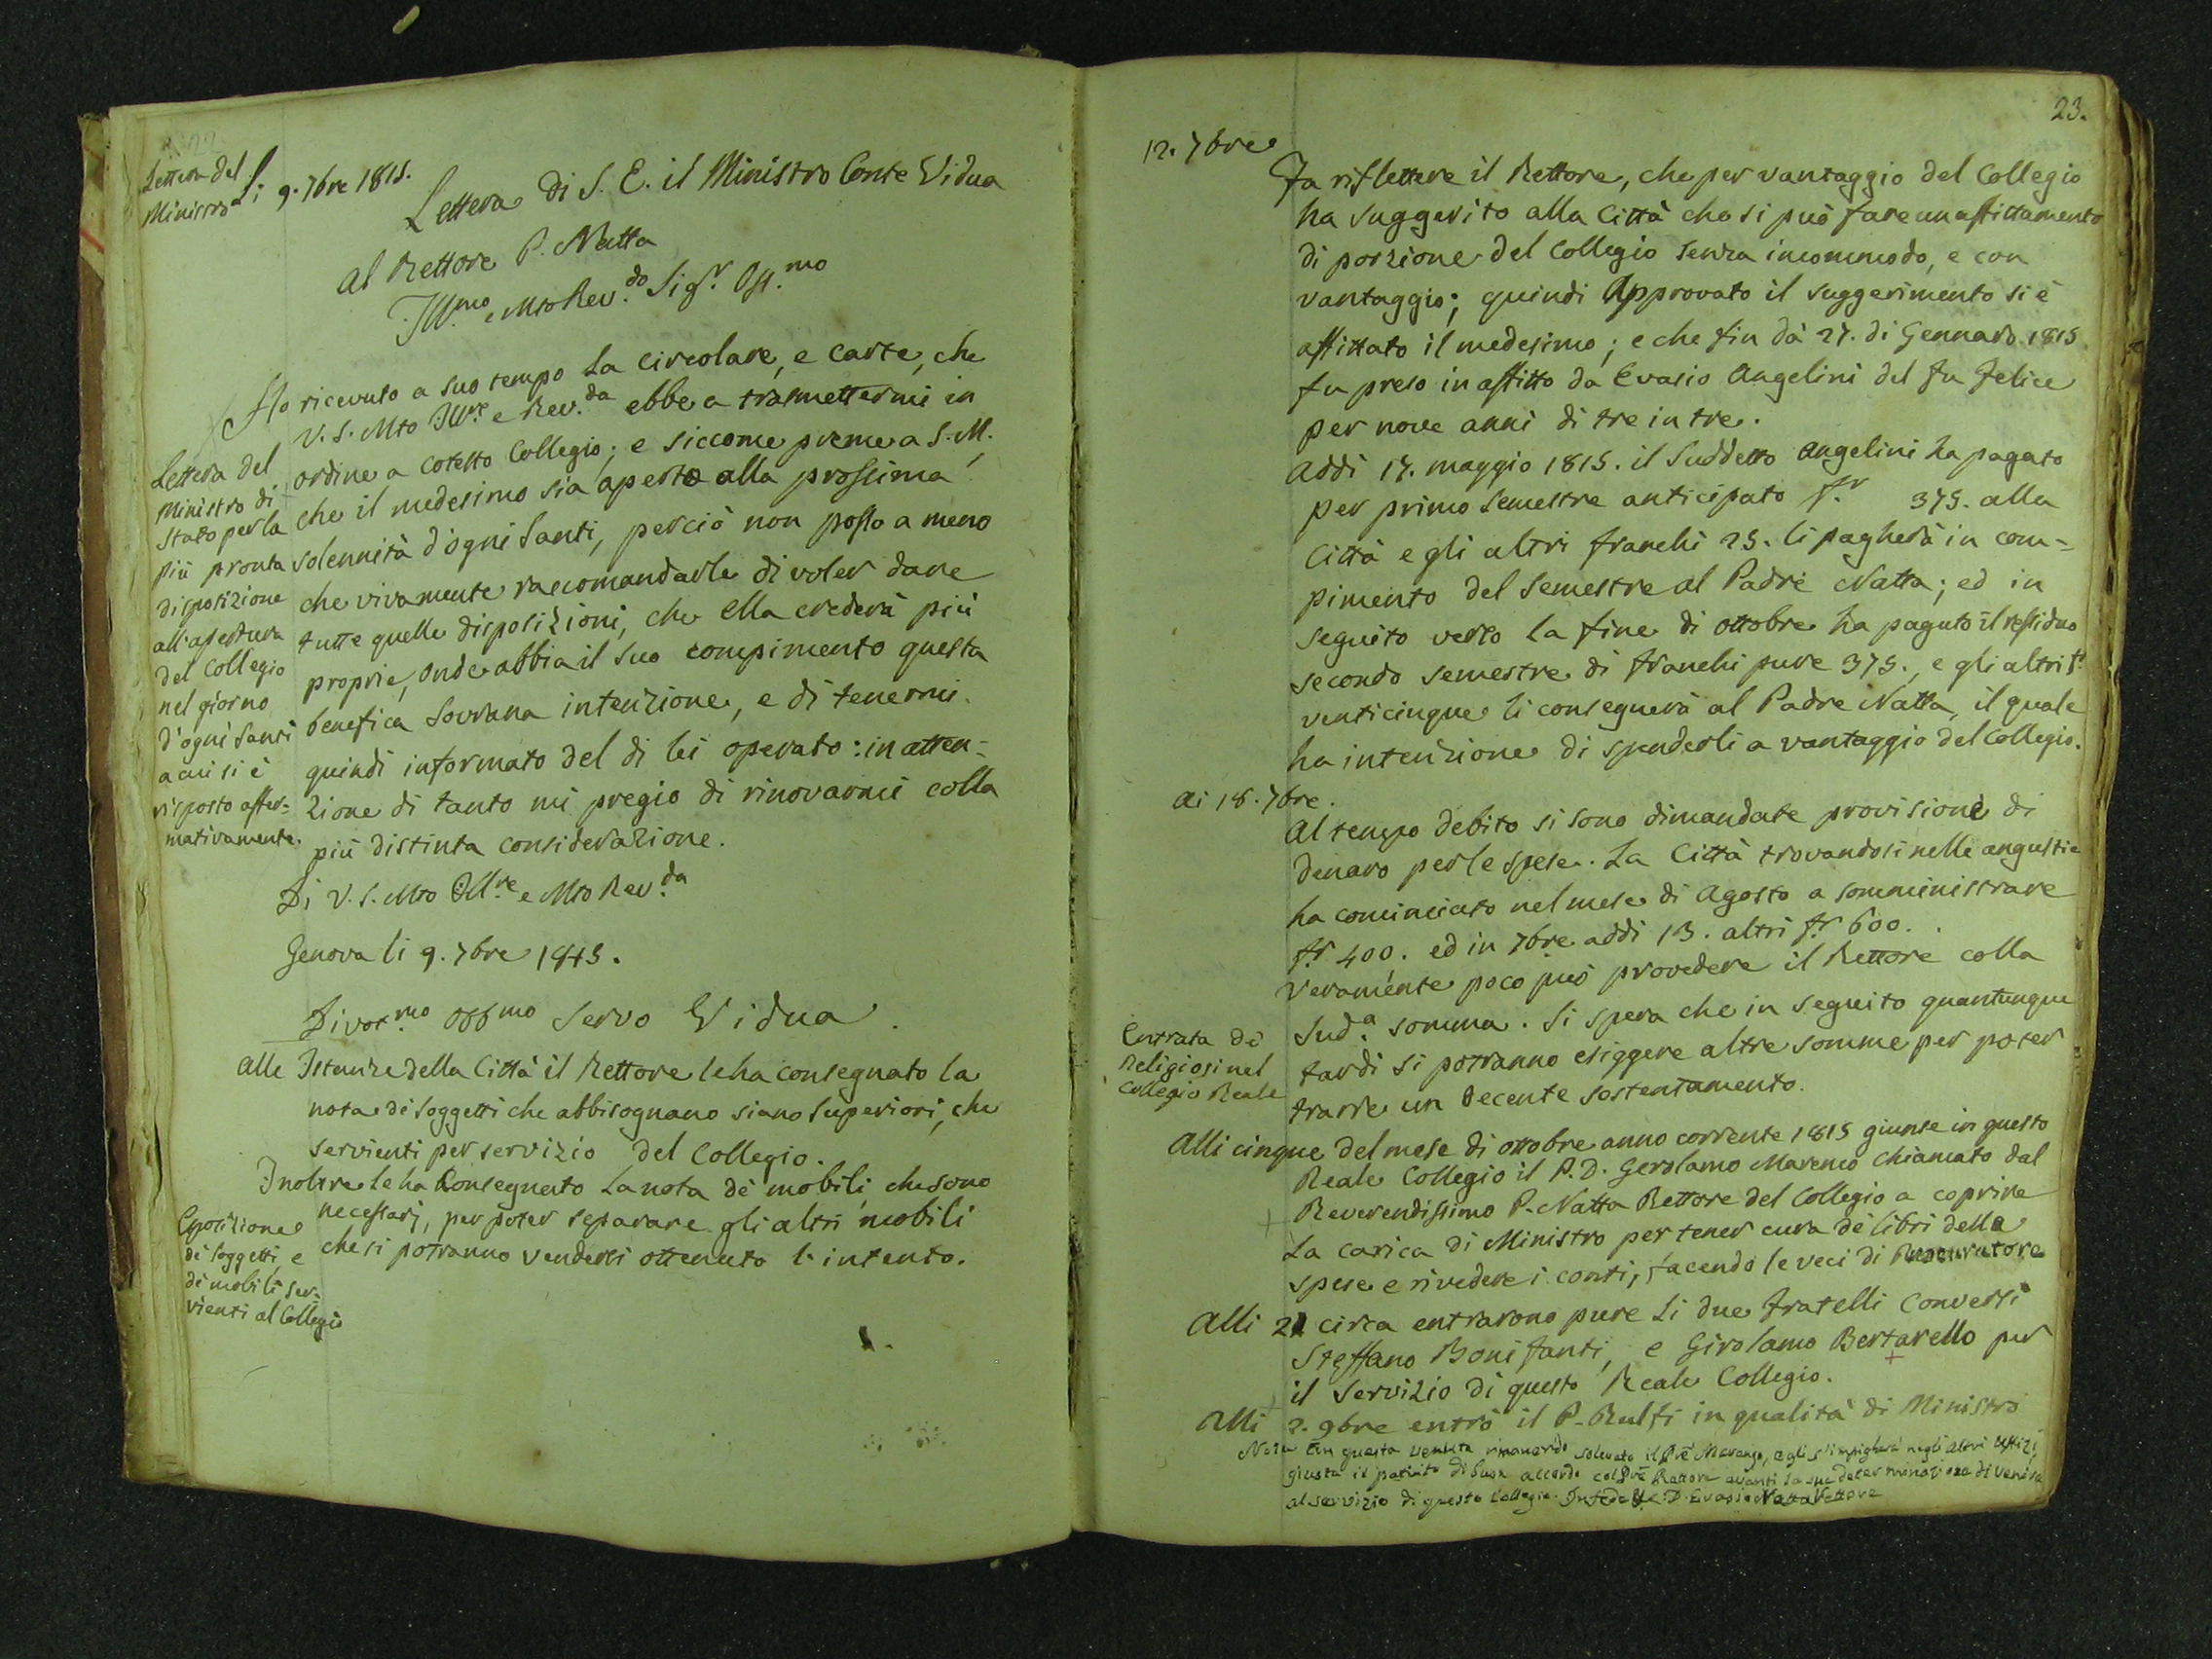 22
Lettera del
Ministro
Li 9. 7bre 1815.
Lettera di S. E. il Ministro Conte Vidua
al Rettore P. Natta
Ill.mo e Mto Rev.do Sig.r Oss.mo
Ho ricevuto a suo tempo la circolare, e carte, che
V. S. Mto Ill.re e Rev.da ebbe a trasmettermi in
ordine a cotesto Collegio; e siccome preme a S. M.
che il medesimo sia aperto alla prossima
solennità d'ogni Santi, perciò non posso a meno
che vivamente raccomandarle di voler dare
tutte quelle disposizioni, che ella crederà più
proprie, onde abbia il suo compimento questa
benefica Sovrana intenzione, e di tenermi
quindi informato del di lei operato: in atten=
zione di tanto mi pregio di rinovarmi colla
più distinta considerazione.
Di V. S. Mto Ill.re e Mto Rev.da
Genova li 9. 7bre 1815.
Divot.mo Obb.mo Servo Vidua.
Lettera del
Ministro di
Stato per la
più pronta
disposizione
all'apertura
del Collegio
nel giorno
d'ogni Santi
a cui si è
risposto affer=
mativamente.
Alle Istanze della Città il Rettore le ha consegnato la
nota dè soggetti che abbisognano siano superiori, che
servienti per servizio del Collegio.
Inoltre le ha Consegnato la nota dè mobili, che sono
necessarj, per poter separare gli altri mobili
che si potranno vendersi ottenuto l'intento.
Esposizione
dè soggetti, e
dè mobili ser=
vienti al Collegio
23.
12. 7bre
Fa riflettere il Rettore, che per vantaggio del Collegio
ha suggerito alla Città che si può fare un affittamento
di porzione del Collegio senza incommodo, e con
vantaggio; quindi Approvato il suggerimento si è
affittato il medesimo; e che fin dà 27. di Gennaro 1815
fu preso in affitto da Evasio Angelini del fu Felice
per nove anni di tre in tre.
Addì 17. maggio 1815. il Suddetto Angelini ha pagato
per primo Semestre anticipato f.r 375. alla
Città e gli altri franchi 25. li pagherà in com=
pimento del Semestre al Padre Natta; ed in
seguito verso la fine di ottobre ha pagato il residuo
secondo semestre di franchi pure 375., e gli altri f.r
venticinque li consegnerà al Padre Natta, il quale
ha intenzione di spenderli a vantaggio del Collegio.
Ai 18. 7bre.
Al tempo debito si sono dimandate provisione di
denaro per le spese. La Città trovandosi nelle angustie
ha cominciato nel mese di Agosto a somministrare
f.r 400. ed in 7bre addì 13. altri f.r 600.
Veramente poco può provedere il Rettore colla
Sud.a somma. Si spera che in seguito quantunque
tardi si potranno esiggere altre somme per poter
trarre un decente sostentamento.
Entrata de
Religiosi nel
Collegio Reale
Alli cinque del mese di ottobre anno corrente 1815 giunse in questo
Reale Collegio il P. D. Gerolamo Marenco chiamato dal
Reverendissimo P. Natta Rettore del Collegio a coprire
la carica di Ministro per tener cura dè libri della
spese e rivedere i conti, facendo le veci di Procuratore
Alli 21 circa entrarono pure li due fratelli Conversi
Steffano Bonifanti, e Girolamo Bertarello per
il Servizio di questo Reale Collegio.
Alli 2. 9bre entrò il P. Rulfi in qualità di Ministro
Nota In questa venuta rimanendo solevato il Pre Marenco, egli s'impiegherà negli altri Uffizi,
giusta il patuito di buon accordo col Pre Rettore avanti la sua determinazione di venire
al servizio di questo Collegio. In fede &c. D. Evasio Natta Rettore